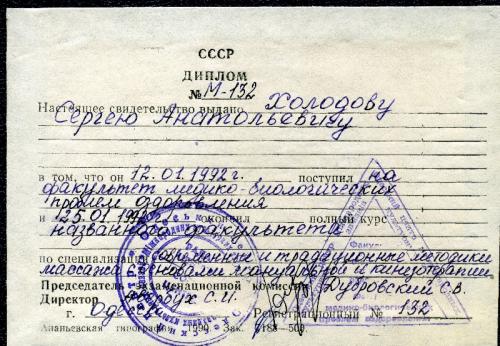 СССР
ДИПЛОМ
№ М-132
Настоящее свидетельство выдано Холодову
Сергею Анатольевичу
в том, что он 12.01.1992 г. поступил на
факультет медико-биологических
проблем оздоровления
и 25.01.1992 окончил полный курс
названного факультета
по специализации современные и традиционные методики
массажа с основами мануальной и кинезотерапии
Председатель экзаменационной комиссии Дубровский С.В.
Директор С.И.
г. Одесса Регистрационный № 132
Ананьевская типография 1990 Зак. 2188—500